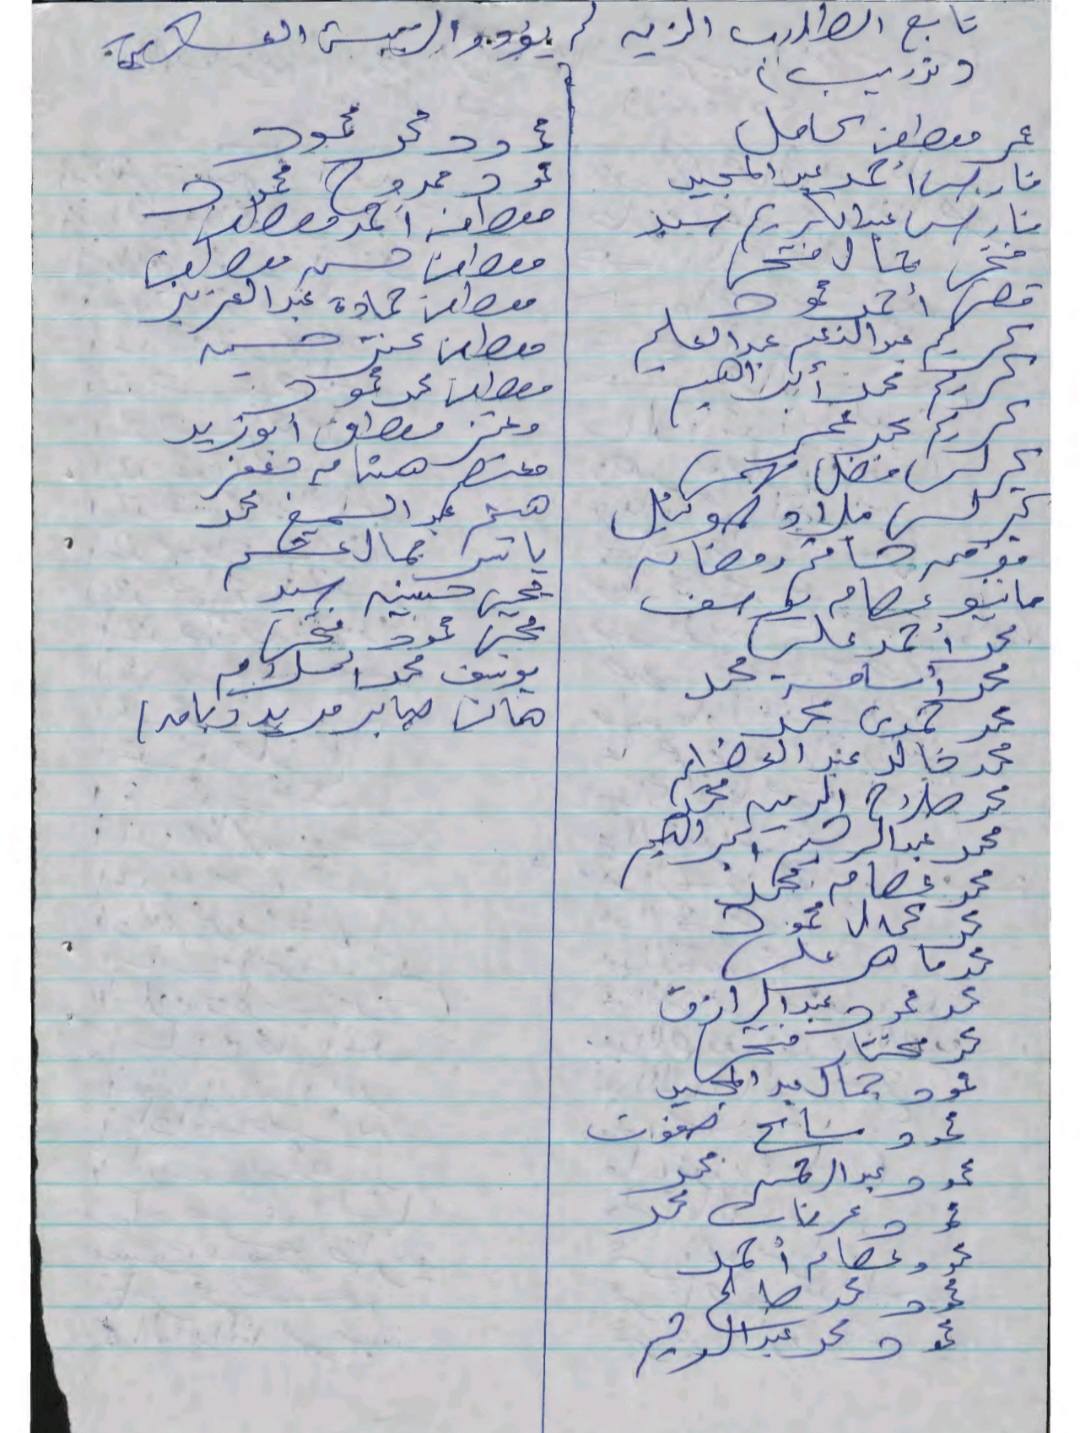 تابع الطلاب الذين لم يؤدوا التربية العسكرية
(تدريب)
عمر مصطفى كامل
فارس أحمد عبدالمجيد
فارس عبدالكريم سيد
فتحى جمال فتحى
قصى أحمد محمود
كريم عبدالنعيم عبدالعليم
كريم محمد إبراهيم
كريم محمد عمر
كيرلس فضل فهمى
كيرلس ميلاد صموئيل
مؤمن رمضان
ماتيو عصام يوسف
محمد أحمد على
محمد أسامة محمد
محمد حمدى محمد
محمد خالد عبد
محمد صلاح الدين محمد
محمد عبدالرحيم إبراهيم
محمد عصام محمد
محمد كمال محمود
محمد ماهر على
محمد محمود عبدالرازق
محمد مختار فتحى
محمود جمال عبدالمجيد
محمود سامح صفوت
محمود عبدالرحمن محمد
محمود عرفات محمد
محمود عصام أحمد
محمود محمد صالح
محمود محمد عبدالرحيم
محمود محمد محمود
محمود ممدوح محمود
مصطفى أحمد مصطفى
مصطفى حسن مصطفى
مصطفى حمادة عبدالعزيز
مصطفى عنتر حسين
مصطفى محمد محمود
معتز مصطفى ابوزيد
معتصم هشام
هيثم عبدالسميع محمد
ياسر جمال
يحيى حسين سيد
يحيى محمود فتحى
يوسف محمد السلام
هانى صابر